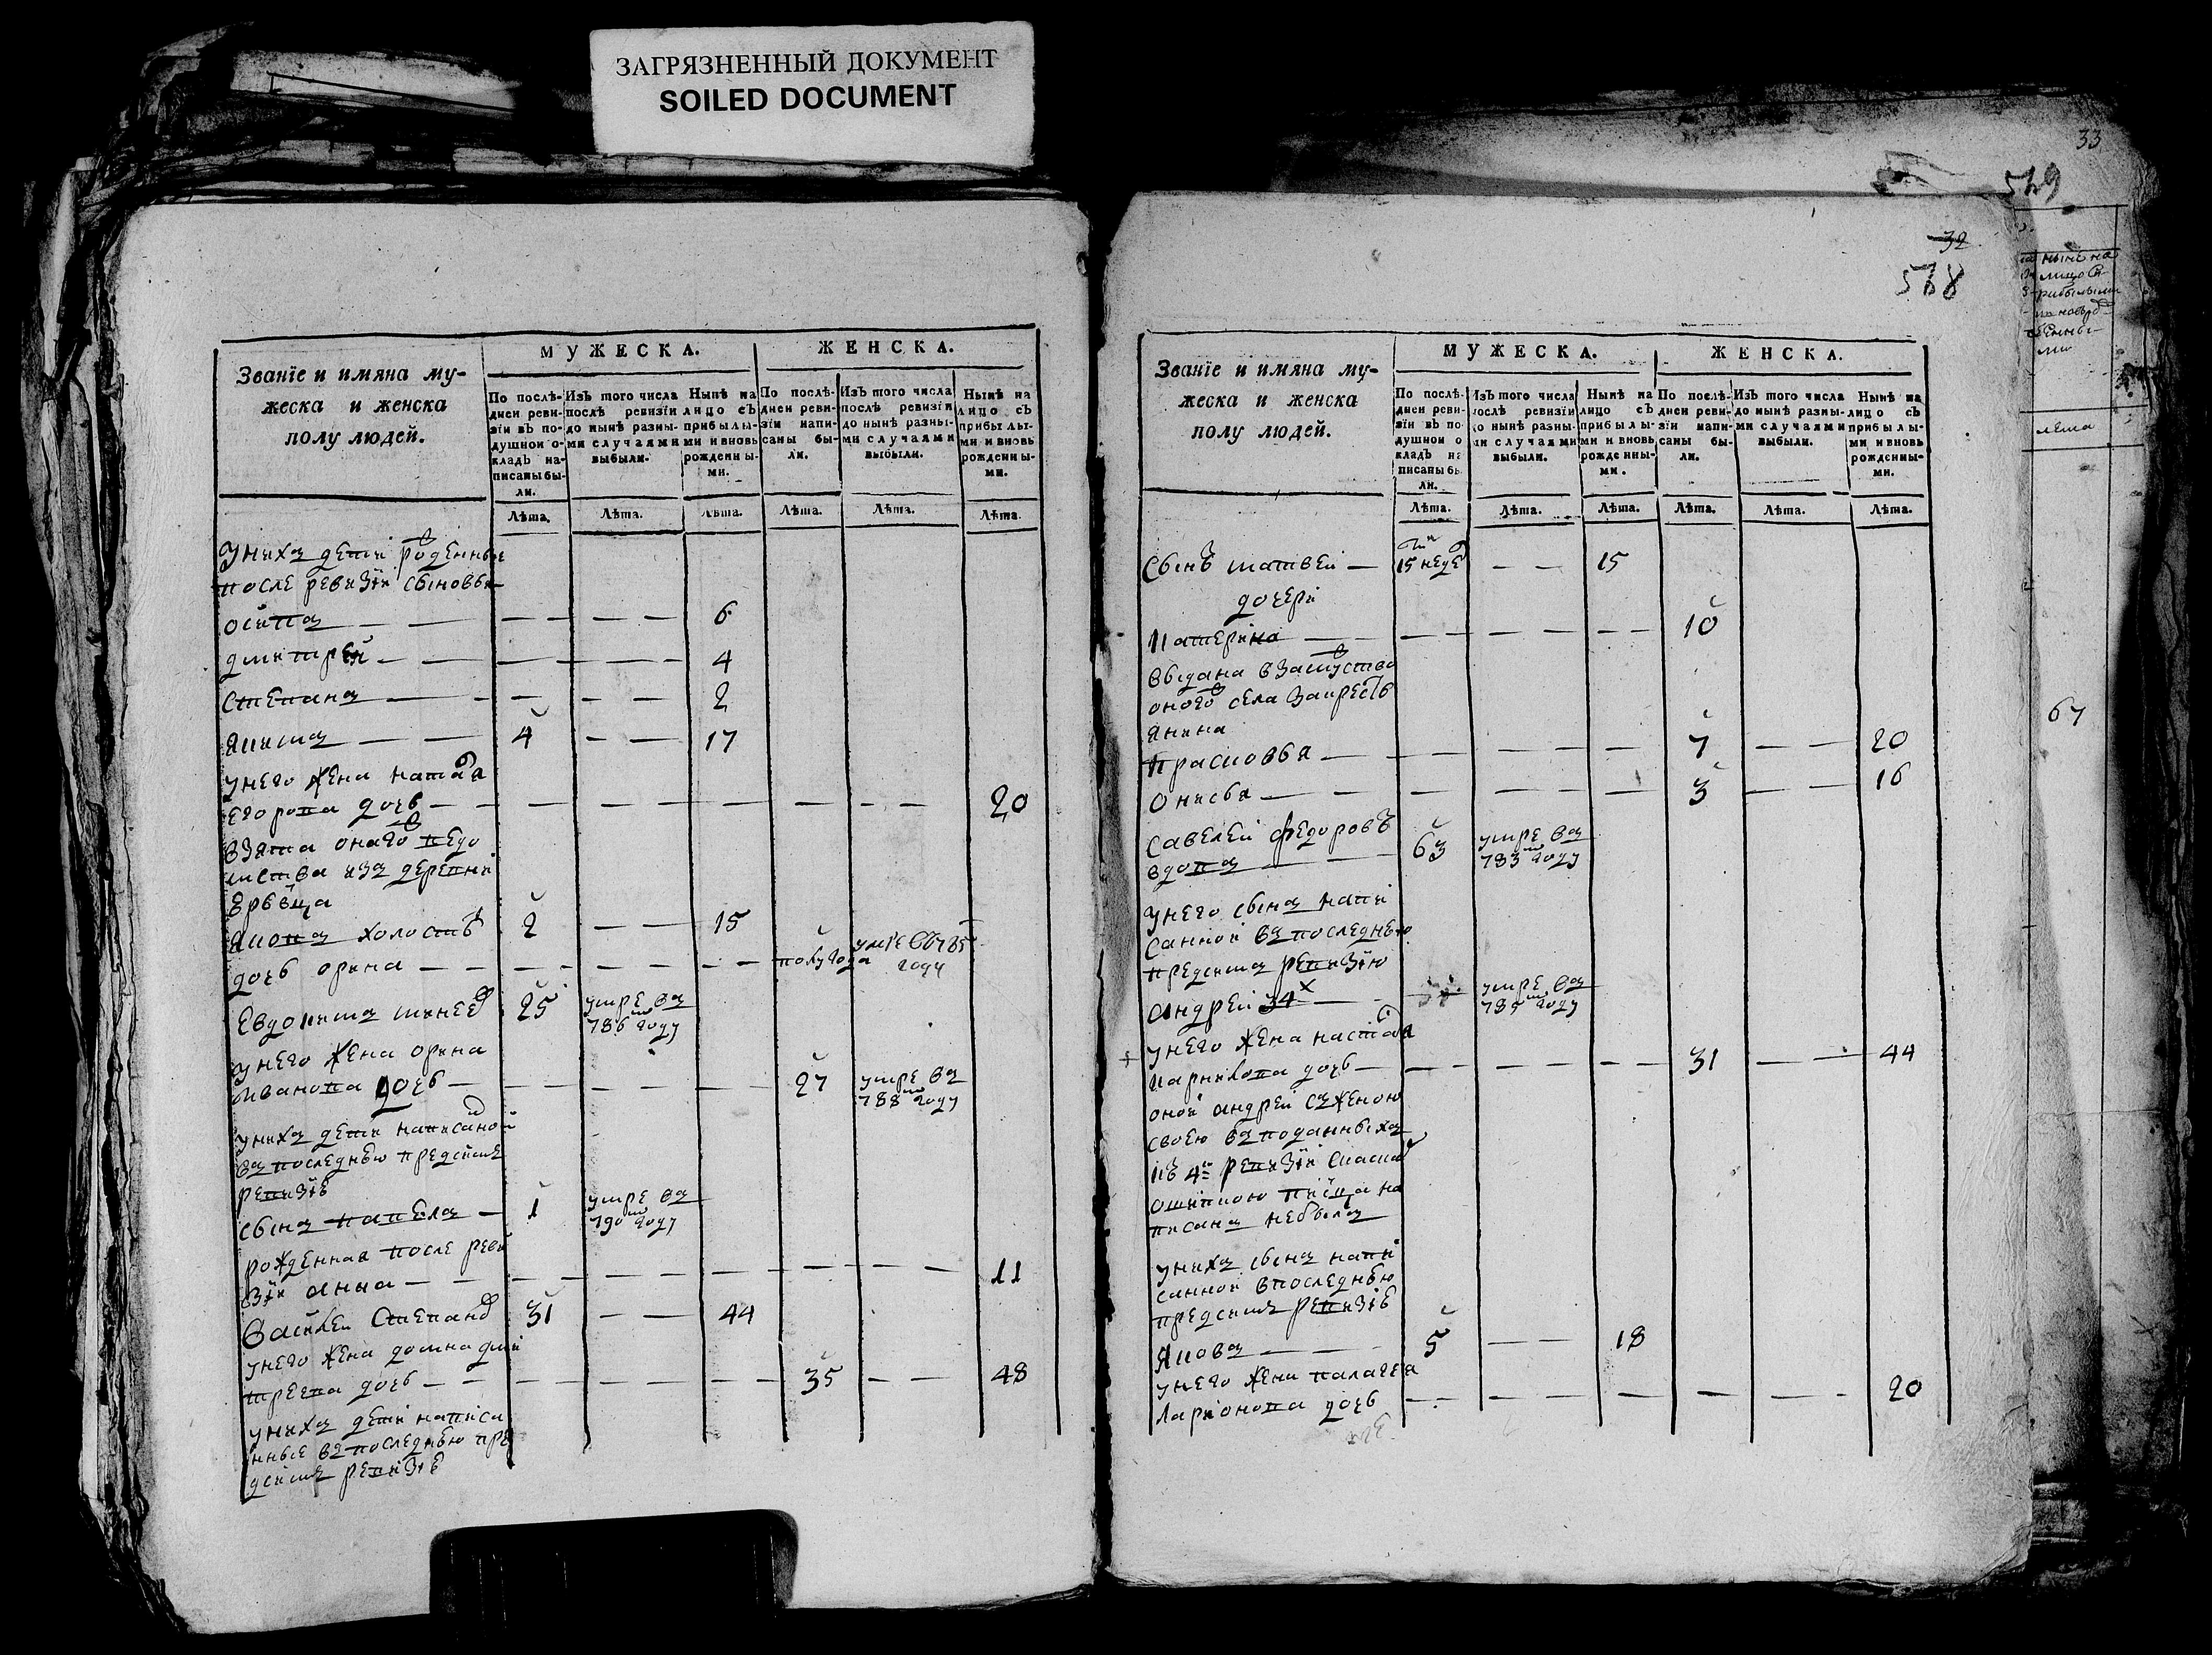 ЗАГРЯЗНЕННЫЙ ДОКУМЕНТ
SOILED DOCUMENT
Званїе и имяна му-
жеска и женска
полу людей.
МУЖЕСКА.
ЖЕНСКА.
По послѣ-
дней реви-
зїи въ по-
душной о-
кладъ на-
писаны бы-
ли.
Изъ того числа
послѣ ревизїи
до нынѣ разны-
ми случаями
выбыли.
Нынѣ на
лицо съ
прибылы-
ми и вновь
рожденны-
ми.
По послѣ-
дней реви-
зїи напи-
саны бы-
ли.
Изъ того числа
послѣ ревизїи
до нынѣ разны-
ми случаями
выбыли.
Нынѣ на
лицо съ
прибылы-
ми и вновь
рожденны-
ми.
Лѣта. Лѣта. Лѣта. Лѣта. Лѣта. Лѣта.
у нихъ дети рожденные
после ревизїи сыновья
осипъ 6
дмитрей 4
степанъ 2
якимъ 4 17
у него жена наталя
егорова дочь 20
взята онаго
из деревни
яковъ холостъ 2 15
дочь орина полугода умре въ 785 году
Евдокимъ 25 умре въ 786 году
у него жена орина
Иванова дочь 27 умре въ 788 году
у нихъ дети написаной
въ последнью предсимъ
ревизїе
сынъ павелъ 1 умре въ 790 году
рожденная после реви
зїи анна 11
Василей Степанов 31 44
у него жена домна дми
треева дочь 35 48
у нихъ дети написа
нные въ последнью пре
дсимъ ревизїе
33
549
32
578
Званїе и имяна му-
жеска и женска
полу людей.
МУЖЕСКА.
ЖЕНСКА.
По послѣ-
дней реви-
зїи въ по-
душной о
кладъ на
писаны бы
ли.
Изъ того числа
послѣ ревизїи
до нынѣ разны-
ми случаями
выбыли.
Нынѣ на
лицо съ
прибылы-
ми и вновь
рожденны-
ми.
По послѣ-
дней реви-
зїи напи-
саны бы-
ли.
Изъ того числа
до нынѣ разны-
ми случаями
выбыли.
Нынѣ на
лицо съ
прибылы-
ми и вновь
рожденны-
ми.
Лѣта. Лѣта. Лѣта. Лѣта. Лѣта. Лѣта.
сынъ матвей 15 недел 15
дочери
катерина 10
выдана взамуство
оного села
прасковья 7 20
онисья 3 16
савелей федоровъ
вдовъ 63 умре въ 783 году
у него сынъ напи
санной въ последнью
предсимъ ревизїю
андрей 34 умре въ году
у него жена настася
карпова дочь 31 44
оной андрей съ женою
своею въ поданныхъ
къ 4й ревизїи
ошипкою писца на
писанъ небылъ
у нихъ сынъ напи
санной в последнью
предсимъ ревизїе
яковъ 5 18
у него жена палагея
Ларионова дочь 20
нынѣ на
лицо съ
лѣта
67